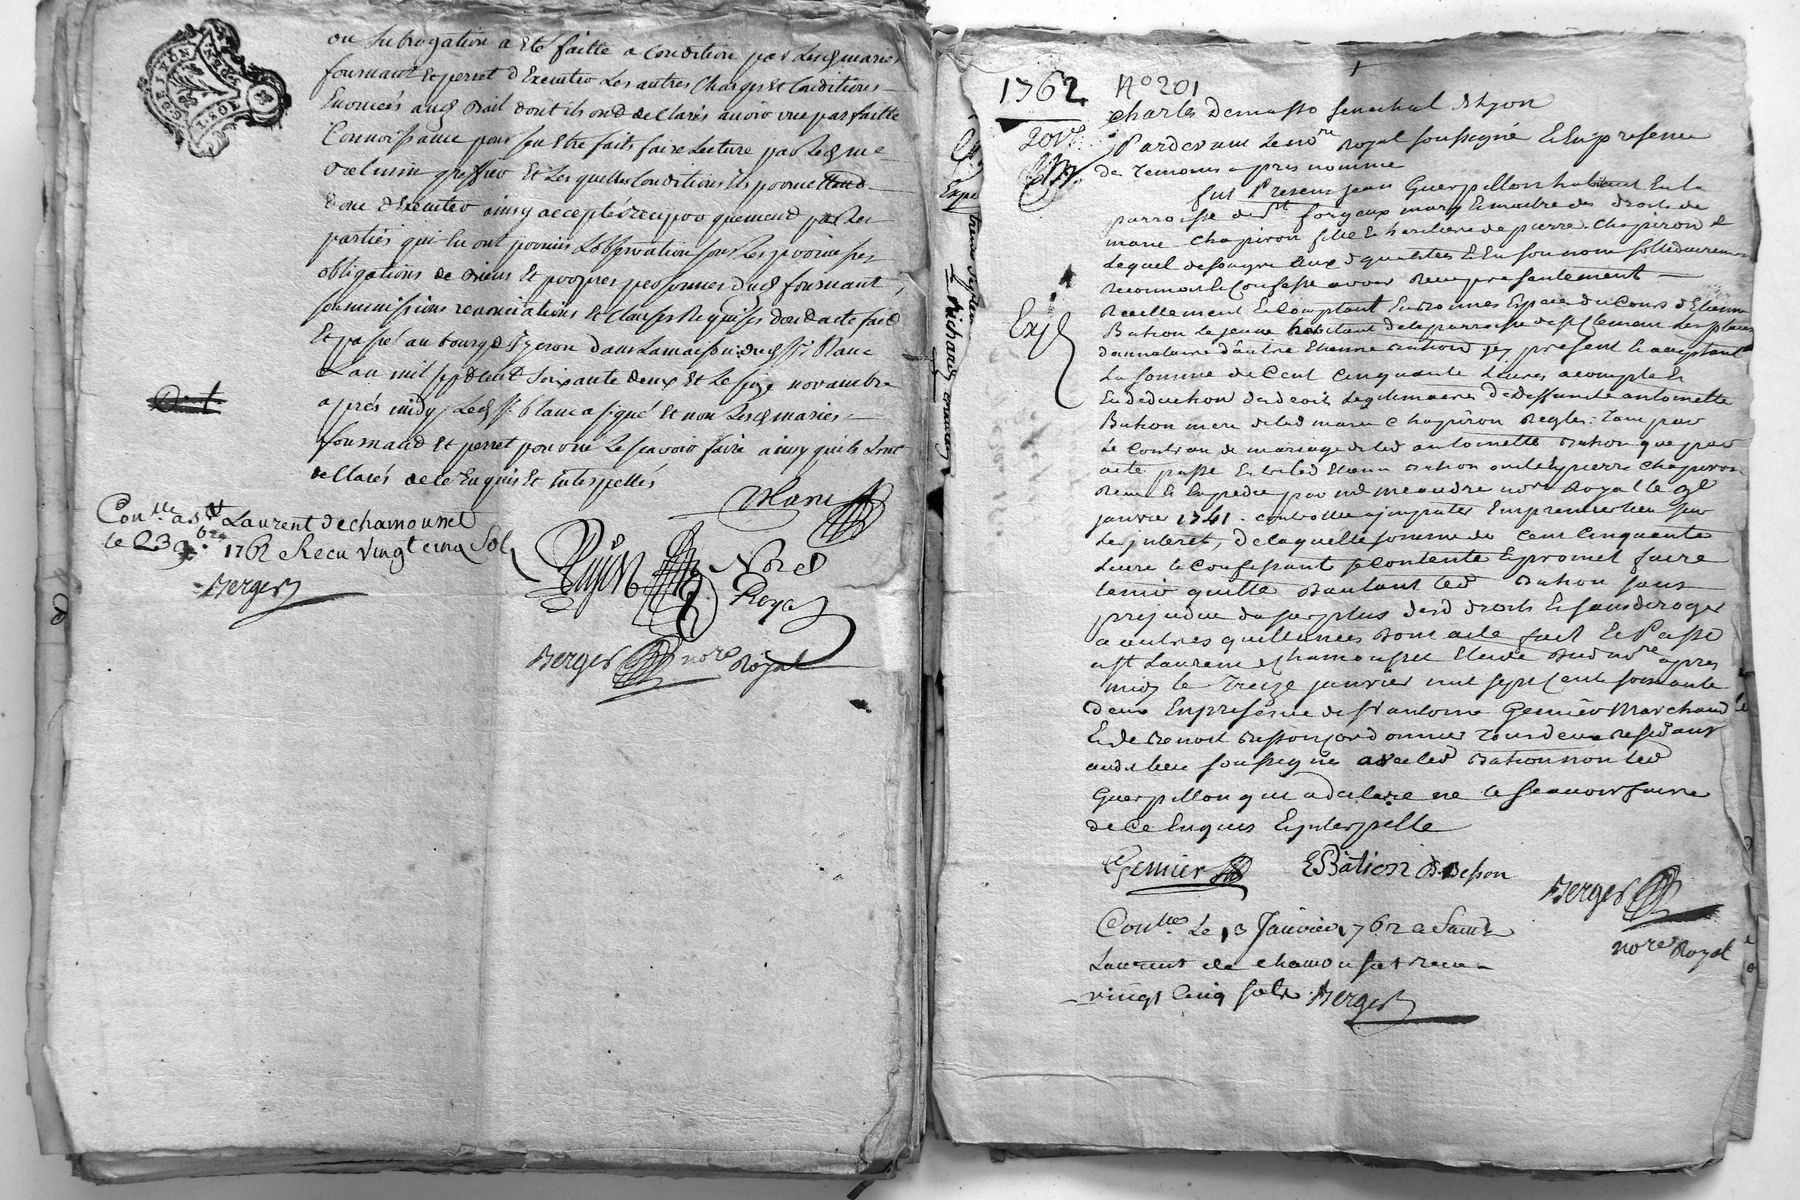 ou subrogation a eté faitte a Condition par lesd maries
fournand et perret d'Executer les autres Charges et Conditions
Enoncées aud Bail dont ils ond declarés avoir une parfaitte
Connoissance pour sen etre faits faire lecture par led me
greffier Et lesquelles Conditions ils promettend
donc d'Executer ainsy accepté reciproquement par les
parties qui en ont promis l'observation sous les promesses
obligations de biens Et propres personnes dud fournant,
soummissions renonciations Et Clauses Requises dond acte faid
Et passé au bourg d'izeron dans la maison dud Sr. Blanc
L'an mil sept Cent soixante deux Et le seize novembre
aprés midy, led Sr. blanc a signé Et non lesd maries
fournand Et perret pour ne le scavoir faire ainsy qu'ils l'ont
declarés de ce Enquis Et Interpellés
Blanc
Conlle a St Laurent de chamousset
le 23 9bre 1762 Recu vingt cinq sol
Berger
Nore
Royal
Berger nore Royal
1762 No 201
charles Demasso senechal de lyon
20 Vs
Pardevant le nore Royal soussigné Et En presence
de Temoins apres nommes
fut Present jean Guerpillon habitant En la
parroisse de St forgeux mary Et maitre des droits de
marie chapiron fille Et heritiere de pierre chapiron Et
lequel de son gre Eux d qualites Et En son nom sollidairement
reconnoit Et Confesse avoir Recu presentement
Exp
Reellement Et Comptant En Bonnes Espece du Cours d'Etienne
Bation le jeune habitant de la parroisse de St Clement les places
donnataire d'autre Etienne Bation icy present Et acceptant
La somme de Cent Cinquante Livres a compte Et
En deduction des droits legitimaires de deffunte antoinette
Bation mere de lad marie chapiron Regles Tant par
le Contrat de mariage de lad antoinette Bation que par
acte passé Entre led Etienne Bation Et pierre chapiron
Recu Et Expedié par me meaudre nore Royal le
janvier 1741. controllé
de laquelle somme de Cent Cinquante
Livre le Confessant se contente Et promet faire
tenir quitte d'autant led Bation sans
prejudice du surplus desd droits Et sans deroger
a autres quittances Dont acte fait Et Passé
a St Laurent de chamousset Etude dud nore apres
midy le Treize janvier mil sept Cent soixante
deux En presence de Sr antoine Gemier Marchand
Et de Benoit Besson Cordonnier Tous deux residant
aud lieu soussignés avec led Bation non led
Guerpillon qui a declaré ne le scavoir faire
de Ce Enquis Et interpellé
Gemier EBâtion B. Besson
Berger
nore Royal
Conlle Le 13 Janvier 1762 a Saint
Laurent de chamousset recu
vingt Cinq sols Berger